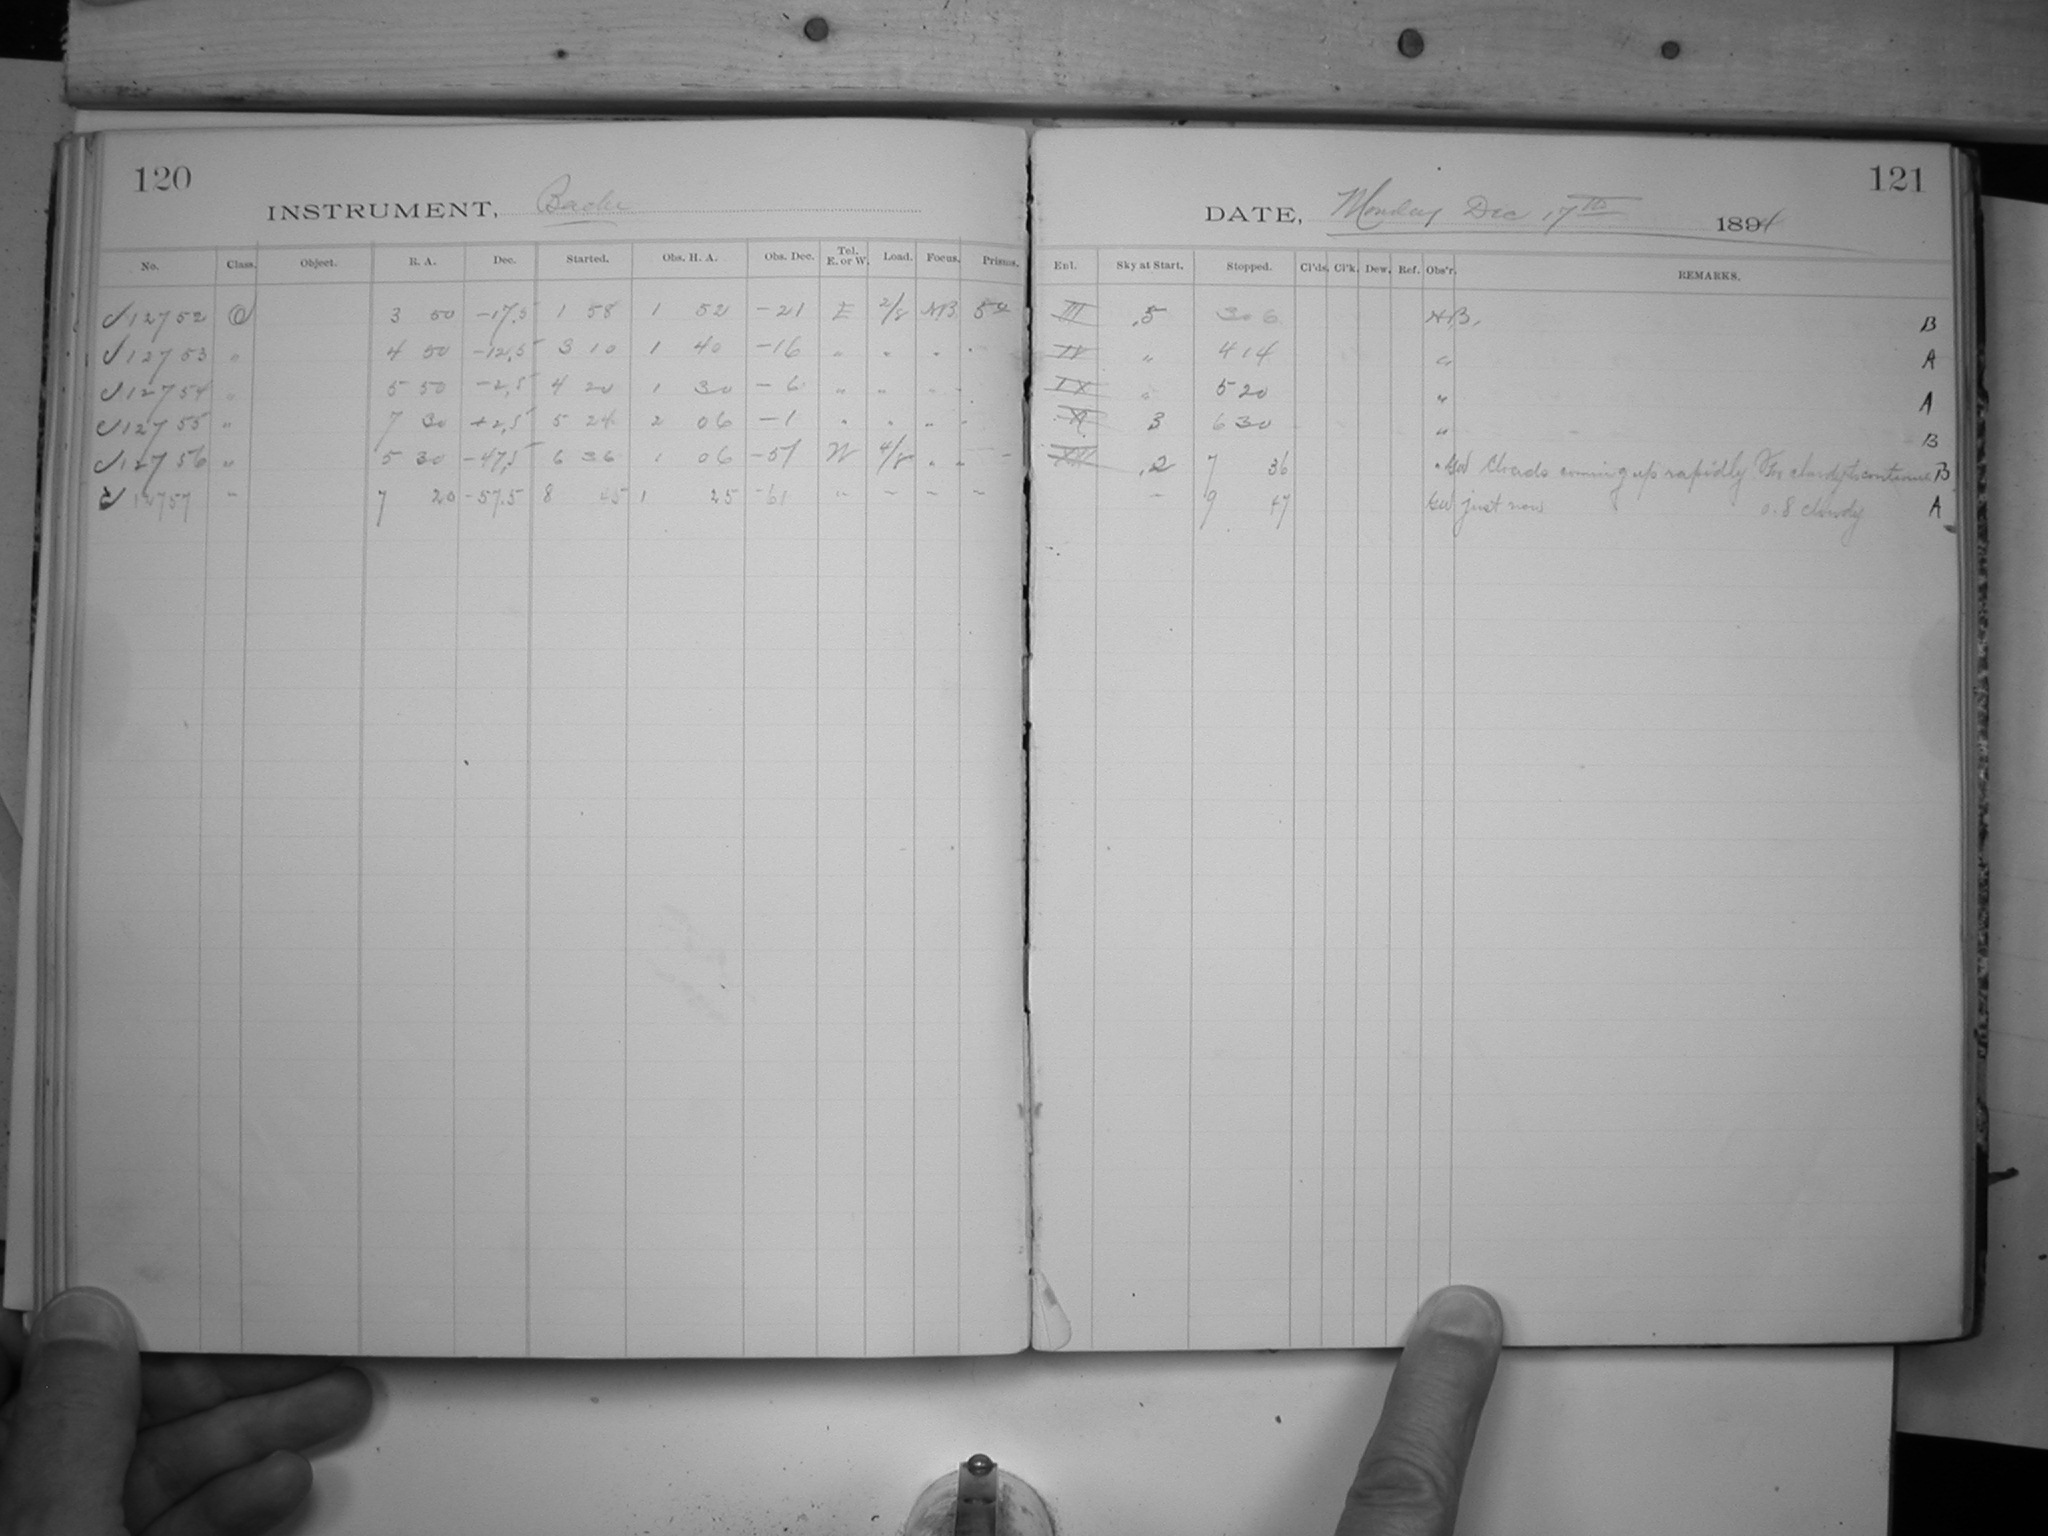 120
INSTRUMENT, Bache
No. Class. Object. R. A. Dec. Started. Obs. H. A. Obs. Dec. Tel. E. or W. Load. Focus. Prisms.
12752 O 3 50 -17.5 1 58 1 52 -21 E 2/8
12753 " 4 50 -12.5 3 10 1 40 -16 " " " "
12754 " 5 50 -2.5 4 20 1 30 -6 " " " "
12755 " 7 30 +2.5 5 24 2 06 -1 " " " "
12756 " 5 30 -47.5 6 36 1 06 -51 W 4/8 " "
12757 " 7 20 -57.5 8 45 1 25 -61 " " " "
121
DATE, Monday Dec 17th 1894
Enl. Sky at Start. Stopped. Cl'ds. Cl'k. Dew. Ref. Obs'r. REMARKS.
III .5 3 06 B
" 4 14 " A
IX " 5 20 " A
3 6 30 " B
.2 7 36 Clouds coming up rapidly Too cloudy to continue B
9 47 just now 0.8 cloudy A